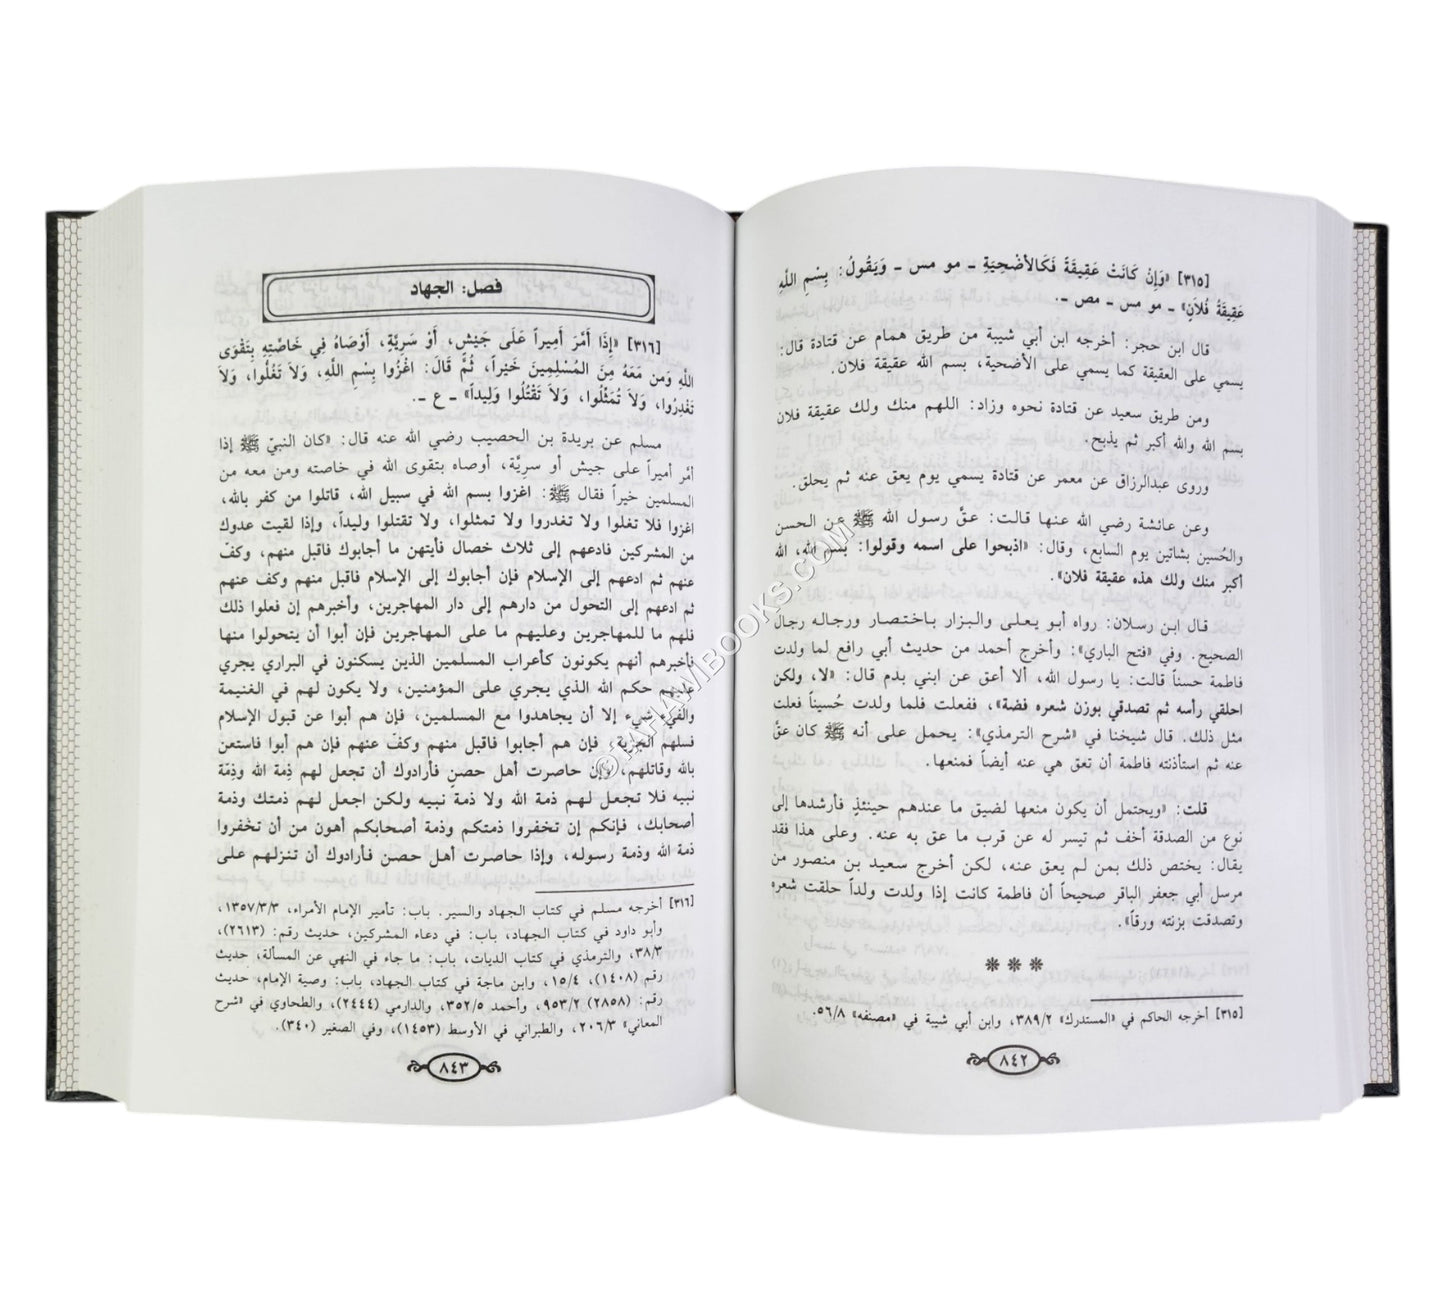 [٣١٥] «وَإِنْ كَانَتْ عَقِيقَةً فَكَالأُضْحِيَةِ ـ مو مس ـ وَيَقُولُ: بِسْمِ اللَّهِ
عَقِيقَةُ فُلاَنٍ» ـ مو مس ـ مص ـ.
قال ابن حجر: أخرجه ابن أبي شيبة من طريق همام عن قتادة قال:
يسمي على العقيقة كما يسمي على الأضحية، بسم الله عقيقة فلان.
ومن طريق سعيد عن قتادة نحوه وزاد: اللهم منك ولك عقيقة فلان
بسم الله والله أكبر ثم يذبح.
وروى عبدالرزاق عن معمر عن قتادة يسمي يوم يعق عنه ثم يحلق.
وعن عائشة رضي الله عنها قالت: عقَّ رسول الله ﷺ عن الحسن
والحُسين بشاتين يوم السابع، وقال: «اذبحوا على اسمه وقولوا: بسم الله، الله
أكبر منك ولك هذه عقيقة فلان».
قال ابن رسلان: رواه أبو يعلى والبزار باختصار ورجاله رجال
الصحيح. وفي «فتح الباري»: وأخرج أحمد من حديث أبي رافع لما ولدت
فاطمة حسناً قالت: يا رسول الله، ألا أعق عن ابني بدم قال: «لا، ولكن
احلقي رأسه ثم تصدقي بوزن شعره فضة»، ففعلت فلما ولدت حُسيناً فعلت
مثل ذلك. قال شيخنا في «شرح الترمذي»: يحمل على أنه ﷺ كان عقَّ
عنه ثم استأذنته فاطمة أن تعق هي عنه أيضاً فمنعها.
قلت: «ويحتمل أن يكون منعها لضيق ما عندهم حينئذٍ فأرشدها إلى
نوع من الصدقة أخف ثم تيسر له عن قرب ما عق به عنه. وعلى هذا فقد
يقال: يختص ذلك بمن لم يعق عنه، لكن أخرج سعيد بن منصور من
مرسل أبي جعفر الباقر صحيحاً أن فاطمة كانت إذا ولدت ولداً حلقت شعره
وتصدقت بزنته ورقاً».
❋ ❋ ❋
[٣١٥] أخرجه الحاكم في «المستدرك» ٣٨٩/٢، وابن أبي شيبة في «مصنفه» ٥٦/٨.
٨٤٢
فصل: الجهاد
[٣١٦] «إِذَا أَمَّرَ أَمِيراً عَلَى جَيْشٍ، أَوْ سَرِيَّةٍ، أَوْصَاهُ فِي خَاصَّتِهِ بِتَقْوَى
اللَّهِ وَمن مَعَهُ مِنَ المُسْلِمِينَ خَيْراً، ثُمَّ قَالَ: اغْزُوا بِسْمِ اللَّهِ، وَلاَ تَغُلُّوا، وَلاَ
تَغْدِرُوا، وَلاَ تُمَثِّلُوا، وَلاَ تَقْتُلُوا وَلِيداً» ـ ع ـ.
مسلم عن بريدة بن الحصيب رضي الله عنه قال: «كان النبيّ ﷺ إذا
أمَّر أميراً على جيش أو سريَّة، أوصاه بتقوى الله في خاصته ومن معه من
المسلمين خيراً فقال ﷺ: اغزوا بسم الله في سبيل الله، قاتلوا من كفر بالله،
اغزوا فلا تغلوا ولا تغدروا ولا تمثلوا، ولا تقتلوا وليداً، وإذا لقيت عدوك
من المشركين فادعهم إلى ثلاث خصال فأيتهن ما أجابوك فاقبل منهم، وكفّ
عنهم ثم ادعهم إلى الإسلام فإن أجابوك إلى الإسلام فاقبل منهم وكف عنهم
ثم ادعهم إلى التحول من دارهم إلى دار المهاجرين، وأخبرهم إن فعلوا ذلك
فلهم ما للمهاجرين وعليهم ما على المهاجرين فإن أبوا أن يتحولوا منها
فأخبرهم أنهم يكونون كأعراب المسلمين الذين يسكنون في البراري يجري
عليهم حكم الله الذي يجري على المؤمنين، ولا يكون لهم في الغنيمة
والفيء شيء إلا أن يجاهدوا مع المسلمين، فإن هم أبوا عن قبول الإسلام
فسلهم الجزية، فإن هم أجابوا فاقبل منهم وكفّ عنهم فإن هم أبوا فاستعن
بالله وقاتلهم، وإن حاصرت أهل حصنٍ فأرادوك أن تجعل لهم ذِمة الله وذِمّة
نبيه فلا تجعل لهم ذمة الله ولا ذمة نبيه ولكن اجعل لهم ذمتك وذمة
أصحابك، فإنكم إن تخفروا ذمتكم وذمة أصحابكم أهون من أن تخفروا
ذمة الله وذمة رسوله، وإذا حاصرت أهل حصن فأرادوك أن تنزلهم على
[٣١٦] أخرجه مسلم في كتاب الجهاد والسير. باب: تأمير الإمام الأمراء، ١٣٥٧/٣/٣،
وأبو داود في كتاب الجهاد، باب: في دعاء المشركين، حديث رقم: (٢٦١٣)،
٣٨/٣، والترمذي في كتاب الديات، باب: ما جاء في النهي عن المسألة، حديث
رقم (١٤٠٨)، ١٥/٤، وابن ماجة في كتاب الجهاد، باب: وصية الإمام، حديث
رقم: (٢٨٥٨) ٩٥٣/٢، وأحمد ٣٥٢/٥، والدارمي (٢٤٤٤)، والطحاوي في «شرح
المعاني» ٢٠٦/٣، والطبراني في الأوسط (١٤٥٣)، وفي الصغير (٣٤٠).
٨٤٣